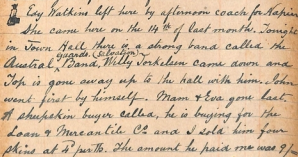 Edy Watkins left here by afternoon coach for Kapiro
She came here on the 14th of last month. Tonight
in Town Hall here is a strong band called the
Austral Band, Willy Torkelsen came down and
Top is gone away up to the hall with him. John
went first by himself. Mam & Eva gone last.
A sheepskin buyer called, he is buying for the
Loan & Mercantile Co and I sold him four
skins at perth. The amount he paid me was 9/